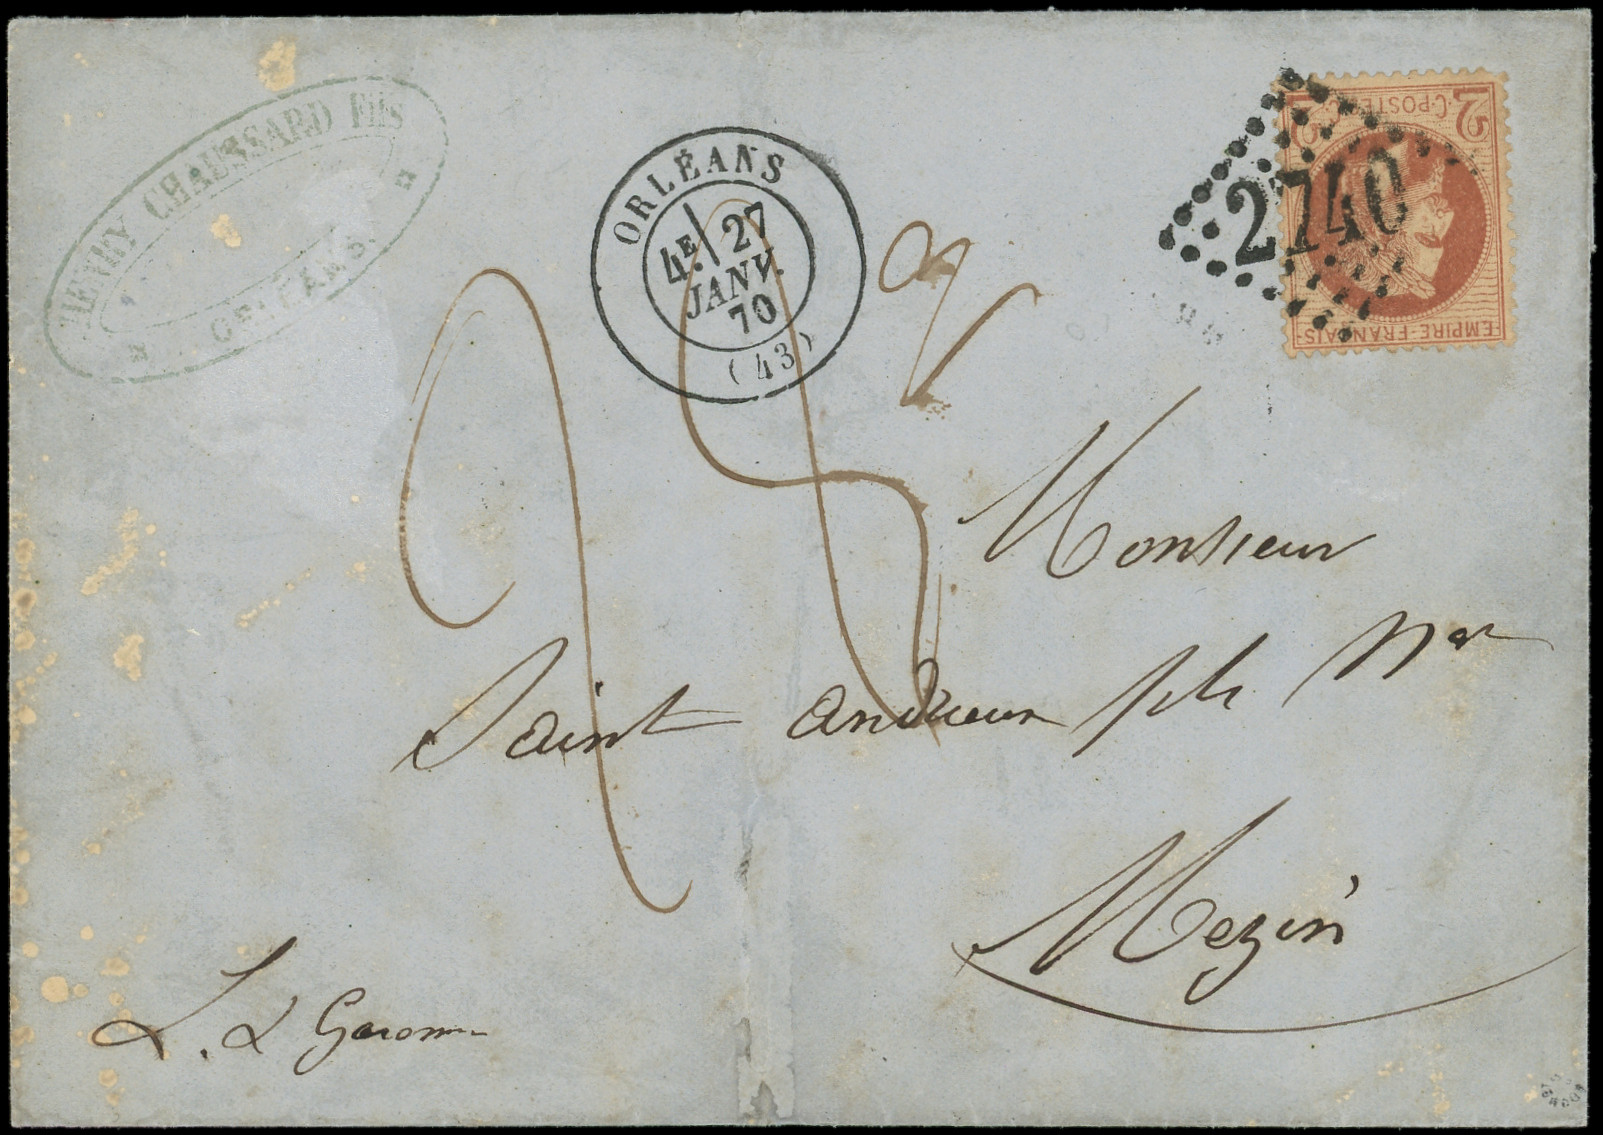 HENRY CHAUSSARD FILS
ORLÉANS.
ORLÉANS
4E 27
JANV.
70
(43)
2 C. POSTES 2
2740
EMPIRE-FRANÇAIS
25
Monsieur
Saint andrieux fils
Mezin
L. & Garonne